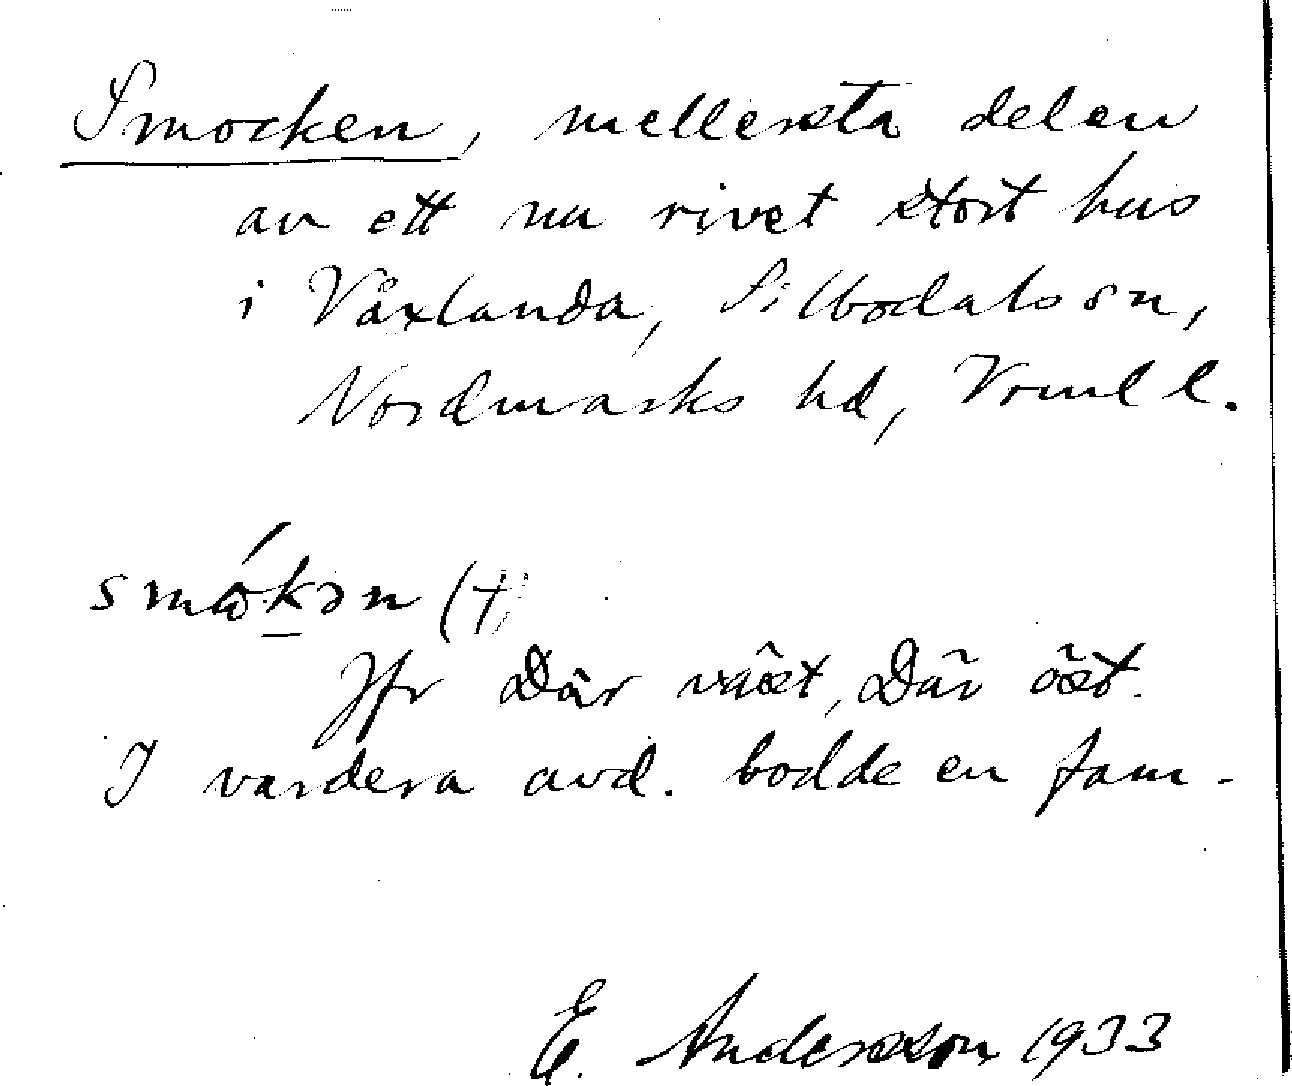 Smocken, mellersta delen
av ett nu rivet stort hus
i Våxlanda, Silbodals sn,
Nordmarks hd, Vrml l.
smωkən (†)
Jfr Där väst, Där öst.
I vardera avd. bodde en fam-
E. Andersson 1933